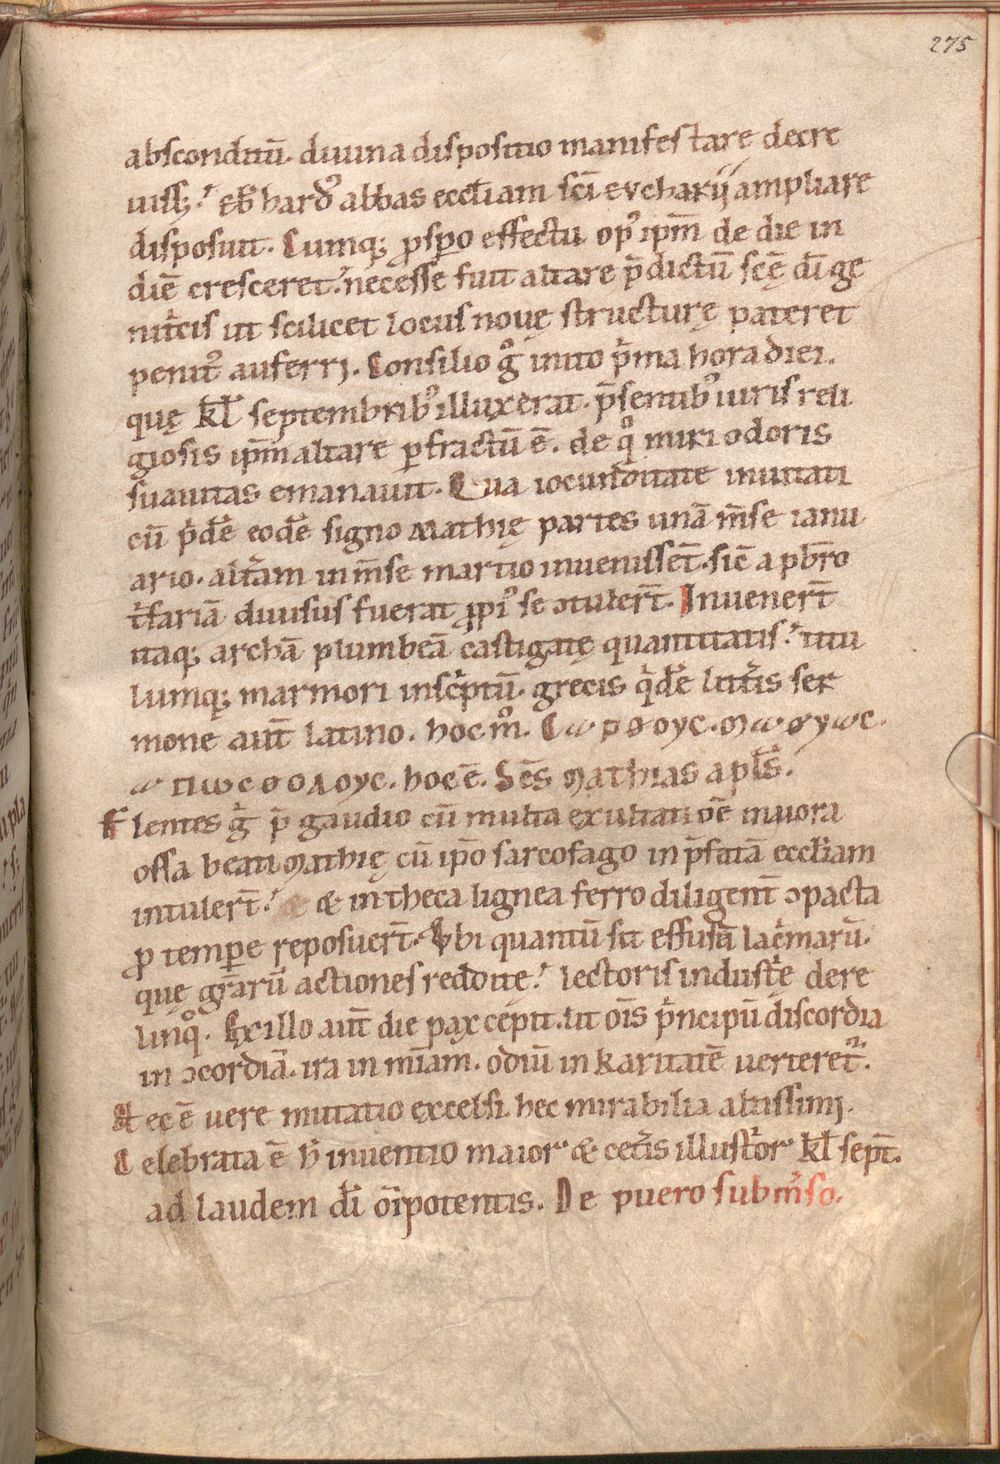 275
absconditū. diuina dispositio manifestare decre
uiss&؛ ebhardꝰ abbas eccl̄iam sc̄i evcharij ampliare
disposuit. Cumq; ꝓsꝑo effectu opꝰ ip̄m de die in
diē cresceret؛ necesse fuit altare p̄dictū scę̄ dī ge
nitͥcis ut scilicet locus nouę structurę pateret
penitꝰ auferri. Consilio g̊ inito pͥma hora diei.
quę kl̄ septembribꝰ illuxerat. p̄sentibꝰ uiris reli
giosis ip̄m altare ꝑfractū ē. de qͦ miri odoris
suauitas emanauit. Qua iocunditate inuitati
cū p̄dēͨ eodē signo Mathię partes unā m̄se ianu
ario. altͣam in m̄se martio inuenissent̄. sic̄ a pbr̄o
tͥfariā diuisus fuerat ꝓpiꝰ se ↄtulert̄. Inuenert̄
itaq; archā plumbeā castigatę quantitatis؛ titu
lumq; marmori inscͥptū. grecis qͥdē litt̄is ser
mone aut̄ latino. hoc mͦ. Cωρθογc. Mωθγωc.
ωπωcθολογc. hoc ē. Sc̄s Mathias apl̄s.
Flentes g̊ p̄ gaudio cū multa exultati oē maiora
ossa beati Mathię cū ip̄o sarcofago in p̄fatā eccl̄iam
intulert̄؛ & in theca lignea ferro diligent̄ ↄpacta
ꝓ temꝑe reposuert̄. Vbi quantū sit effusū lacͥmarū.
quę gr̄arū actiones redditę؛ lectoris industͥę dere
linqͦ. Ex illo aut̄ die pax cepit. ut oīs pͥncipū discordia
in ↄcordiā. ira in mīam. odiū in karitatē verteret᷑.
Hec ē vere mutatio excelsi. hec mirabilia altissimi.
Celebrata ē h̄ inuentio maior & cetͥs illustͥor kl̄ sept̄.
ad laudem dī oīpotentis. De puero submͥso.